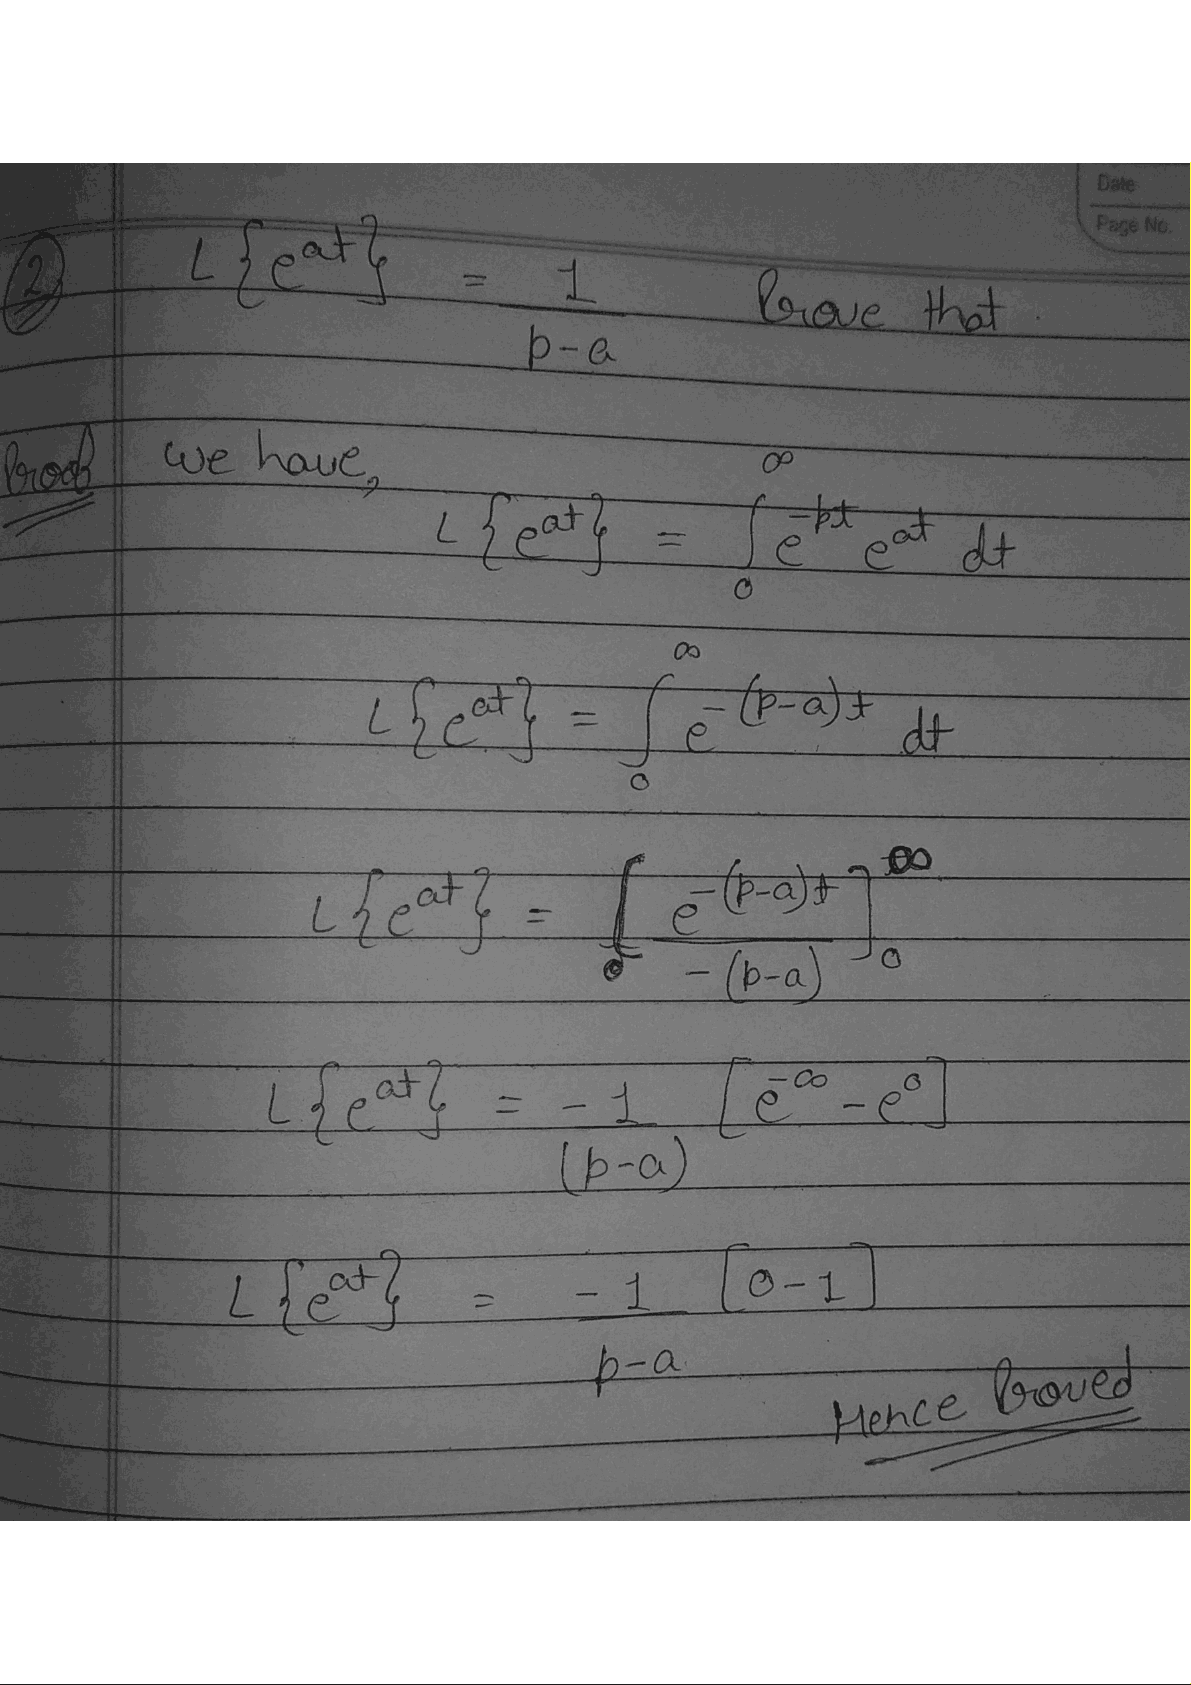 Date
Page No.
2 L{e^{at}} = 1/(p-a) Prove that
Proof we have,
L{e^{at}} = ∫_0^∞ e^{-pt} e^{at} dt
L{e^{at}} = ∫_0^∞ e^{-(p-a)t} dt
L{e^{at}} = [e^{-(p-a)t}/-(p-a)]_0^∞
L{e^{at}} = -1/(p-a) [e^{-∞} - e^0]
L{e^{at}} = -1/p-a [0-1]
Hence Proved